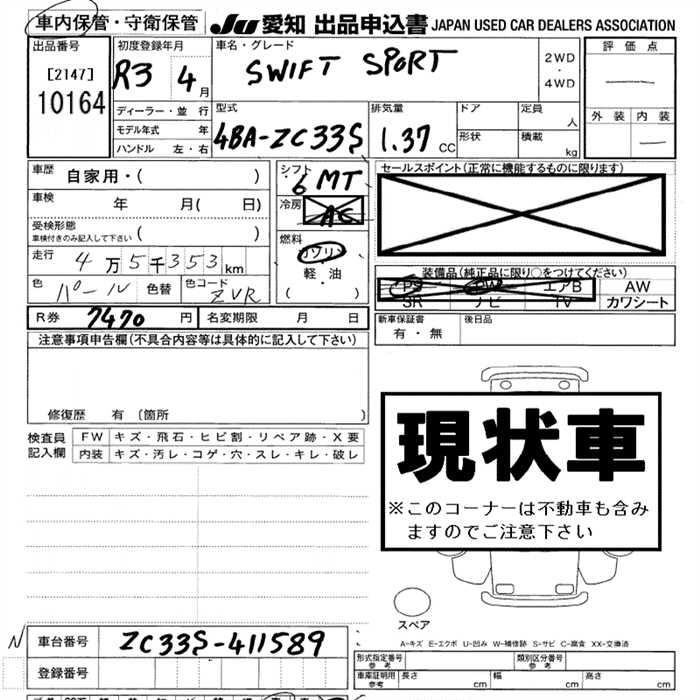 車内保管・守衛保管 JU 愛知 出品申込書 JAPAN USED CAR DEALERS ASSOCIATION
出品番号
[2147]
10164
初度登録年月
R3 4月
車名・グレード
SWIFT SPORT
2WD
・
4WD
評価点
外装 内装
ディーラー・並行
モデル年式 年
ハンドル 左・右
型式
4BA-ZC33S
排気量
1.37 CC
ドア
形状
定員
人
積載
kg
車歴 自家用・( )
車検 年 月( 日)
受検形態
車検付きのみ記入して下さい ( )
走行 4万5千353km
色 パール 色替 色コード ZVR
シフト
6 MT
冷房
AC
燃料
ガソリン
・
軽・油
( )
セールスポイント(正常に機能するものに限ります)
装備品(純正品に限り○をつけてください)
PS PW エアB AW
SR ナビ TV カワシート
R券 7470 円 名変期限 月 日
新車保証書
有・無
後日品
注意事項申告欄(不具合内容等は具体的に記入して下さい)
修復歴 有 〔箇所 〕
検査員
記入欄
FW キズ・飛石・ヒビ割・リペア跡・X要
内装 キズ・汚レ・コゲ・穴・スレ・キレ・破レ
現状車
※このコーナーは不動車も含み
ますのでご注意下さい
スペア
A-キズ E-エクボ U-凹み W-補修跡 S-サビ C-腐食 XX-交換済
N 車台番号 ZC33S-411589
登録番号
形式指定番号
参考
類別区分番号
参考
車庫証明用
参考
長さ cm 幅 cm 高さ cm